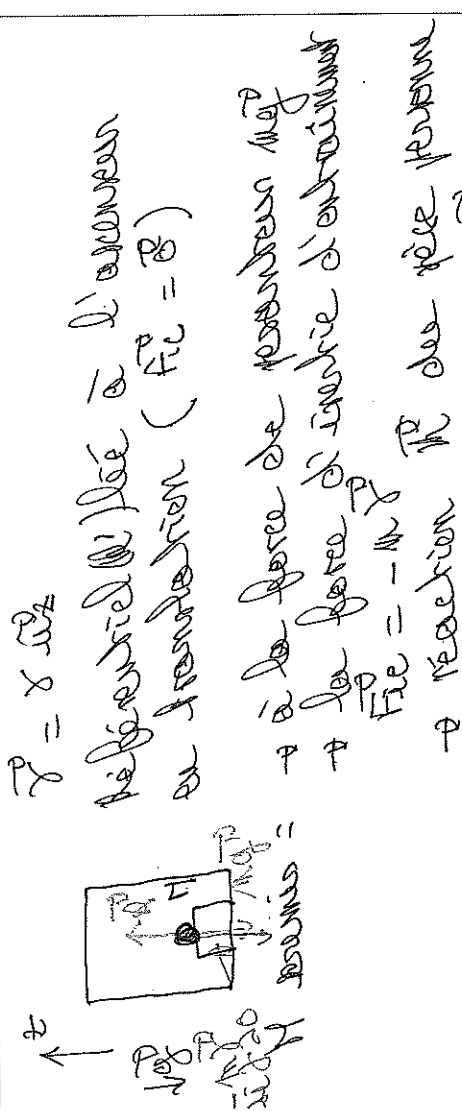 γ⃗ = γ u⃗z
Référentiel (R') lié à l'ascenseur
en translation ( F⃗ic = 0⃗ )
z
g⃗
M
soumis =
→ à la force de pesanteur mg⃗
→ la force d'inertie d'entrainement
F⃗ie = - m γ⃗
→ réaction R⃗ du pèse personne